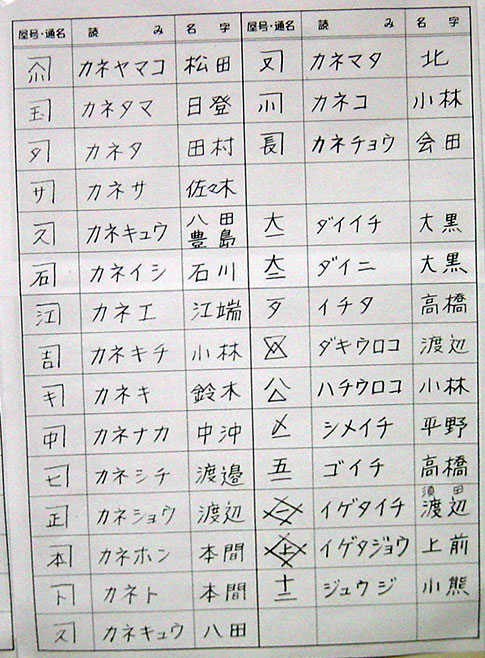 屋号・通名 読み 名字
小 カネヤマコ 松田
玉 カネタマ 日登
タ カネタ 田村
サ カネサ 佐々木
久 カネキュウ 八田 豊島
石 カネイシ 石川
江 カネエ 江端
吉 カネキチ 小林
キ カネキ 鈴木
中 カネナカ 中沖
七 カネシチ 渡邉
正 カネショウ 渡辺
本 カネホン 本間
ト カネト 本間
久 カネキュウ 八田
屋号・通名 読み 名字
又 カネマタ 北
小 カネコ 小林
長 カネチョウ 会田
大一 ダイイチ 大黒
大二 ダイニ 大黒
一タ イチタ 高橋
ダキウロコ 渡辺
八 ハチウロコ 小林
〆一 シメイチ 平野
五一 ゴイチ 高橋
一 イゲタイチ 渡辺 須田
上 イゲタジョウ 上前
十二 ジュウジ 小熊